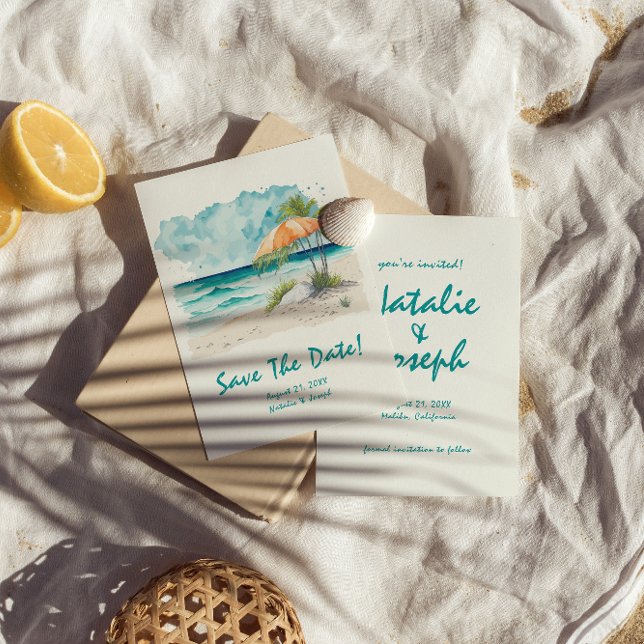 Save The Date!
August 21, 20XX
Natalie & Joseph
you're invited!
Natalie
&
Joseph
August 21, 20XX
Malibu, California
formal invitation to follow